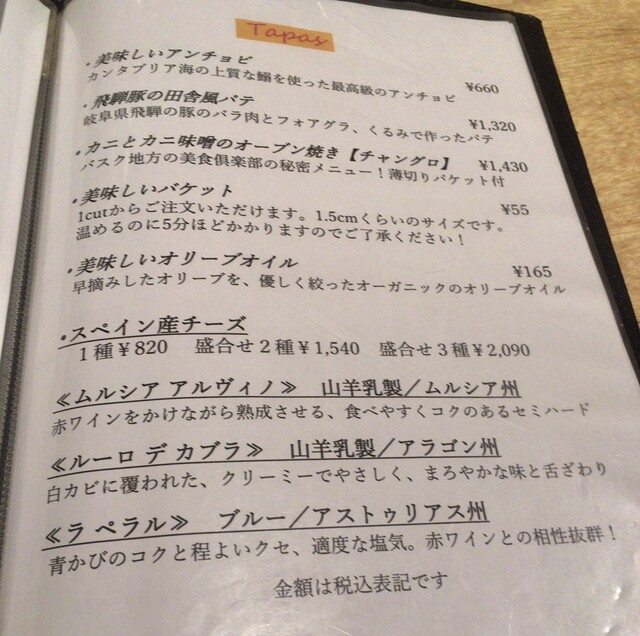 Tapas
・美味しいアンチョビ
カンタブリア海の上質な鰯を使った最高級のアンチョビ ¥660
・飛騨豚の田舎風パテ
岐阜県飛騨の豚のバラ肉とフォアグラ、くるみで作ったパテ ¥1,320
・カニとカニ味噌のオーブン焼き【チャングロ】 ¥1,430
バスク地方の美食倶楽部の秘密メニュー！薄切りバケット付
・美味しいバケット ¥55
1cutからご注文いただけます。1.5cmくらいのサイズです。
温めるのに5分ほどかかりますのでご了承ください！
・美味しいオリーブオイル ¥165
早摘みしたオリーブを、優しく絞ったオーガニックのオリーブオイル
・スペイン産チーズ
1種¥820 盛合せ2種¥1,540 盛合せ3種¥2,090
≪ムルシア アルヴィノ≫ 山羊乳製／ムルシア州
赤ワインをかけながら熟成させる、食べやすくコクのあるセミハード
≪ルーロ デ カブラ≫ 山羊乳製／アラゴン州
白カビに覆われた、クリーミーでやさしく、まろやかな味と舌ざわり
≪ラ ペラル≫ ブルー／アストゥリアス州
青かびのコクと程よいクセ、適度な塩気。赤ワインとの相性抜群！
金額は税込表記です